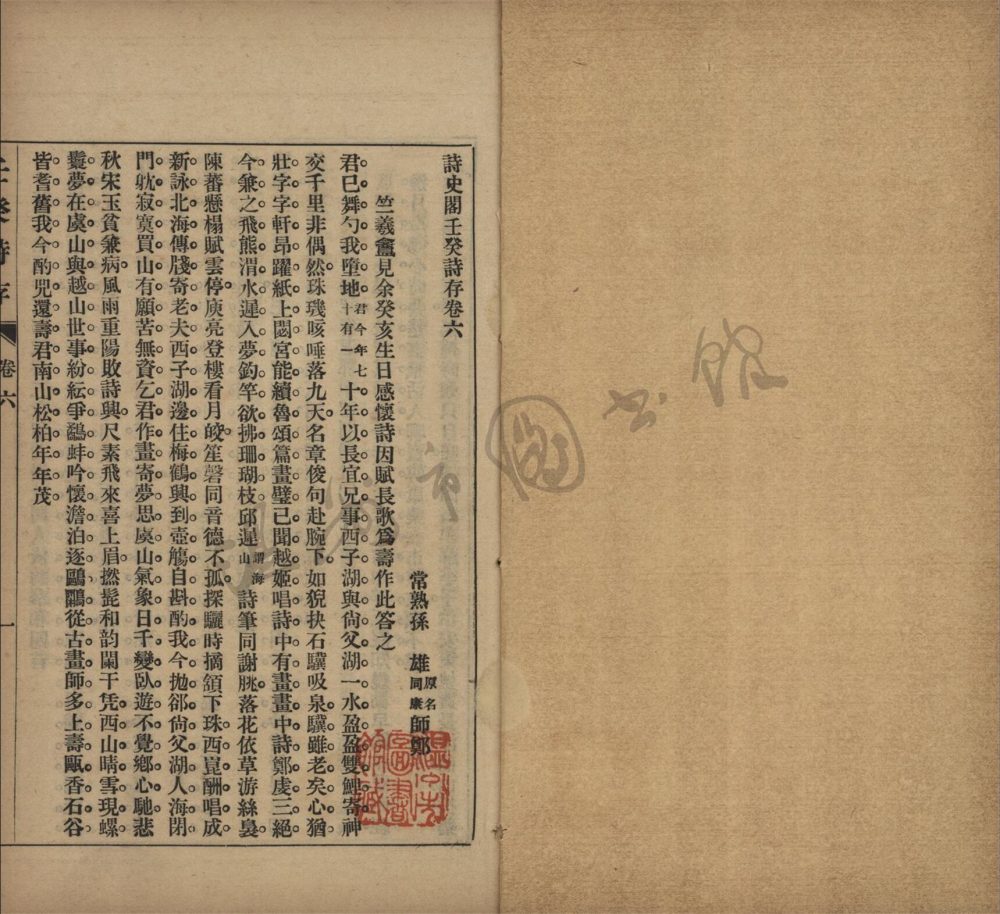 詩史閣壬癸詩存卷六
常熟孫　雄原名同康師鄭
竺羲盦見余癸亥生日感懷詩因賦長歌爲壽作此答之
君已舞勺我墮地君今年七十有一十年以長宜兄事西子湖與尙父湖一水盈盈雙鯉寄神
交千里非偶然珠璣咳唾落九天名章俊句赴腕下如猊抉石驥吸泉驥雖老矣心猶
壯字字軒昂躍紙上閟宮能續魯頌篇畫壁已聞越姬唱詩中有畫畫中詩鄭虔三絕
今兼之飛熊渭水遲入夢釣竿欲拂珊瑚枝邱遲謂海山詩筆同謝朓落花依草游絲裊
陳蕃懸榻賦雲停庾亮登樓看月皎笙磬同音德不孤探驪時摘頷下珠西崑酬唱成
新詠北海傳牋寄老夫西子湖邊住梅鶴興到壺觴自斟酌我今拋卻尙父湖人海閉
門躭寂寞買山有願苦無資乞君作畫寄夢思虞山氣象日千變臥遊不覺鄉心馳悲
秋宋玉貧兼病風雨重陽敗詩興尺素飛來喜上眉撚髭和韵闌干凭西山晴雪現螺
鬟夢在虞山與越山世事紛紜爭鷸蚌吟懷澹泊逐鷗鷳從古畫師多上壽甌香石谷
皆耆舊我今酌兕還壽君南山松柏年年茂
壬癸詩存
卷六
一
溫州市圖書館藏
溫州市圖書館